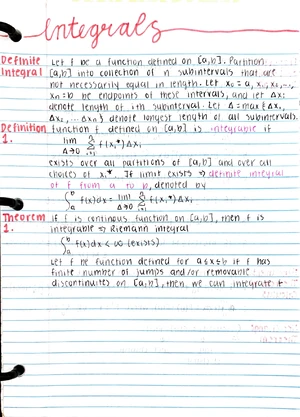 Integrals
Definite Let f be a function defined on [a,b]. Partition
Integral [a,b] into collection of n subintervals that are
not necessarily equal in length. Let x₀ = a, x₁, x₂, ...,
xₙ = b be endpoints of these intervals, and let Δxᵢ
denote length of ith subinterval. Let Δ = max{Δx₁,
Δx₂, ... Δxₙ} denote longest length of all subintervals.
Definition function f defined on [a,b] is integrable if
1. lim Δ→0 Σ f(xᵢ*)Δxᵢ
exists over all partitions of [a,b] and over all
choices of xᵢ*. If limit exists ⇒ definite integral
of f from a to b, denoted by
∫ₐᵇ f(x)dx = lim Δ→0 Σ f(xᵢ*)Δxᵢ
Theorem if f is continous function on [a,b], then f is
1. integrable ⇒ Riemann integral
∫ₐᵇ f(x)dx < ∞ (exists)
Let f be function defined for a≤x≤b if f has
finite number of jumps and/or removable
discontinuities on [a,b], then we can integrate f